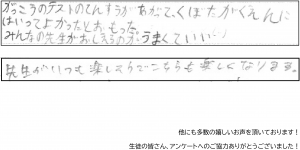 がっこうのテストのてんすうがあがってくぼたがくえんに
はいってよかったとおもった
みんなの先生がおしえるのがうまくていい
先生がいつも楽しそうでこちらも楽しくなります。
他にも多数の嬉しいお声を頂いております！
生徒の皆さん、アンケートへのご協力ありがとうございました！